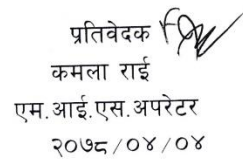 प्रतिवेदक
कमला राई
एम.आई.एस.अपरेटर
२०७८/०४/०४